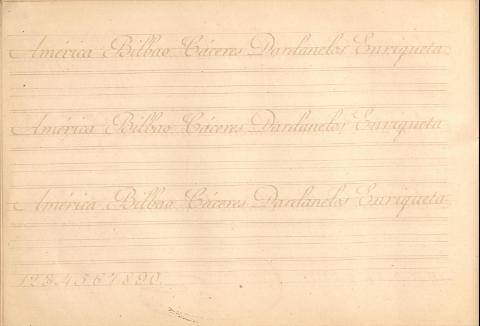 América Bilbao Cáceres Dardanelos Enriqueta
América Bilbao Cáceres Dardanelos Enriqueta
América Bilbao Cáceres Dardanelos Enriqueta
1 2 3 4 5 6 7 8 9 0.